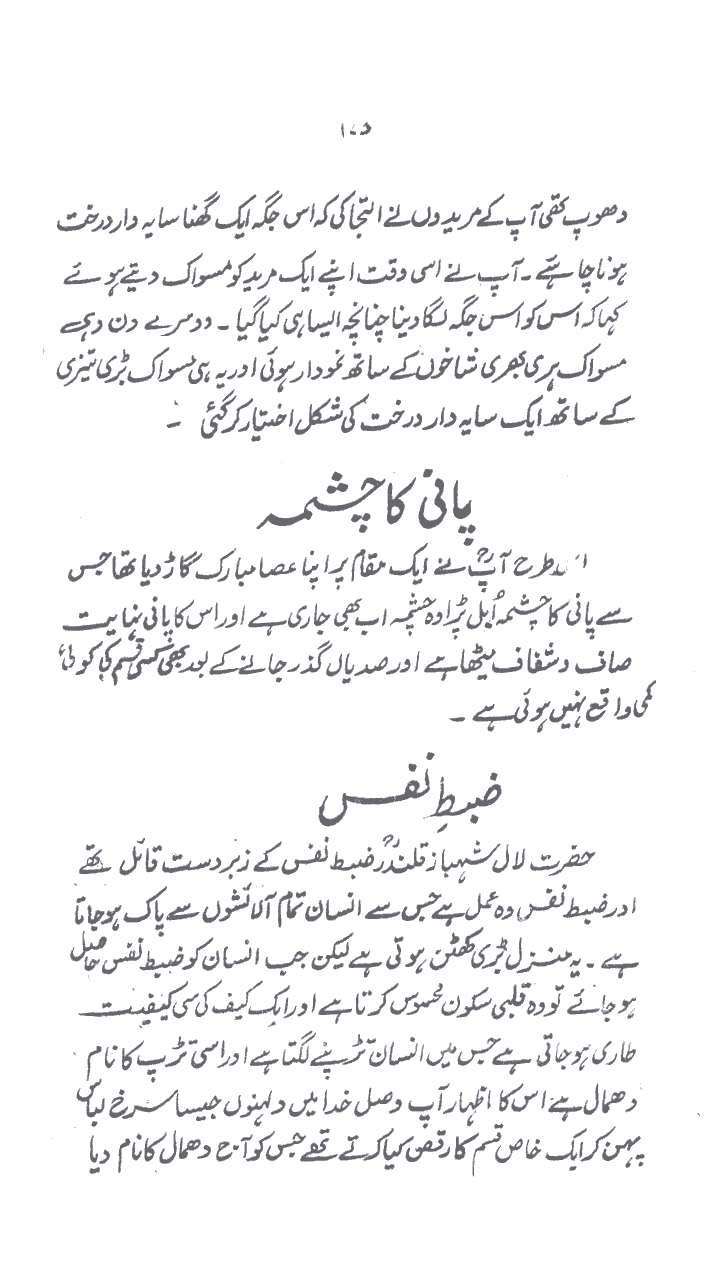 ۱۷۵
دھوپ تھی آپ کے مریدوں نے التجا کی کہ اس جگہ ایک گھنا سایہ دار درخت
ہونا چاہئے ۔ آپ نے اسی وقت اپنے ایک مرید کو مسواک دیتے ہوئے
کہا کہ اس کو اس جگہ لگا دینا چنانچہ ایسا ہی کیا گیا ۔ دوسرے دن وہی
مسواک ہری بھری شاخوں کے ساتھ نمودار ہوئی اور یہ ہی مسواک بڑی تیزی
کے ساتھ ایک سایہ دار درخت کی شکل اختیار کر گئی ۔
پانی کا چشمہ
طرح آپؒ نے ایک مقام پر اپنا عصا مبارک گاڑ دیا تھا جس
سے پانی کا چشمہ اُبل پڑا وہ چشمہ اب بھی جاری ہے اور اس کا پانی نہایت
صاف و شفاف میٹھا ہے اور صدیاں گذر جانے کے بعد بھی کسی قسم کی کوئی
کمی واقع نہیں ہوئی ہے ۔
ضبطِ نفس
حضرت لال شہباز قلندرؒ ضبط نفس کے زبردست قائل تھے
اور ضبط نفس وہ عمل ہے جس سے انسان تمام آلائشوں سے پاک ہو جاتا
ہے ۔ یہ منزل بڑی کٹھن ہوتی ہے لیکن جب انسان کو ضبط نفس حاصل
ہو جائے تو وہ قلبی سکون محسوس کرتا ہے اور ایک کیف کی سی کیفیت
طاری ہو جاتی ہے جس میں انسان تڑپنے لگتا ہے اور اسی تڑپ کا نام
دھمال ہے اس کا اظہار آپ وصل خدا میں دلہنوں جیسا سرخ لباس
پہن کر ایک خاص قسم کا رقص کیا کرتے تھے جس کو آج دھمال کا نام دیا